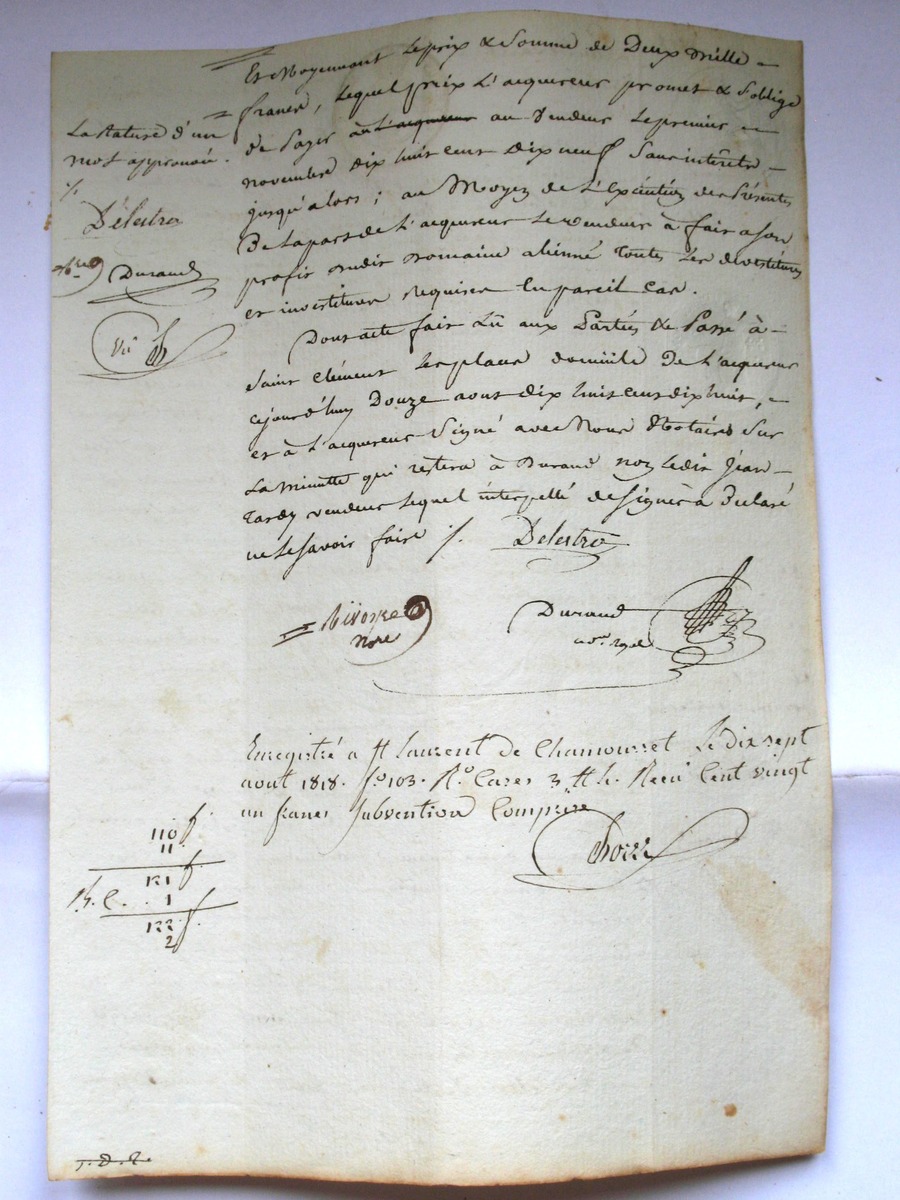 Et Moyennant Le prix & Somme de Deux mille
francs, Lequel prix L'acquereur promet & S'oblige
de Payer au L'acquereur au Vendeur Le premier
novembre dix huit cent dix neuf Sans intérêts
jusqu'alors; au Moyen de L'Exécution des Présentes
De La part de L'acquereur Le vendeur à fait a son
profit du dit Domaine aliénné Toutes Les devestitures
et investitures requises En pareil Cas.
Dont acte fait Lû aux Parties & Passé à
Saint Clément Les places domicile De L'acquereur
cejourd'huy Douze aout dix huit cent dix huit,
et à L'acquereur Signé avec Nous Notaires Sur
La minutte qui restera à Durand non Ledit Jean
Tardy vendeur Lequel interpellé de signer à Déclaré
ne Le savoir faire ./. Delestra
La Rature d'un
mot approuvée
./.
Delestra
Durand
Durand
nore royal
nore
Enregistré a St Laurent de Chamousset Le dix sept
aout 1818. fo 103. Ro Cases 3 & 4. Recu Cent vingt
un francs Subvention Comprise
110 f
11
121 f
1
122 f
2
T.D.L.